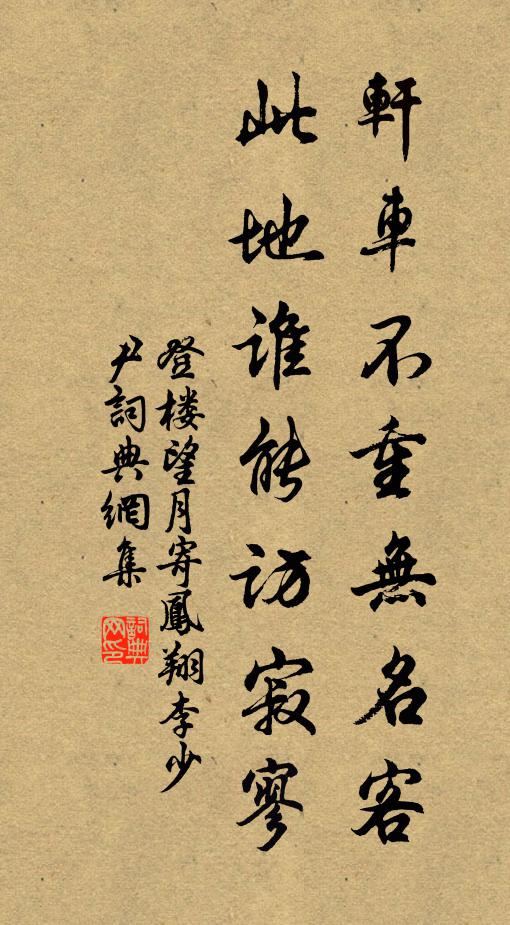 軒車不重無名客
此地誰能訪寂寥
登楼望月寄鳳翔李少
尹詞典網集
詞典网印